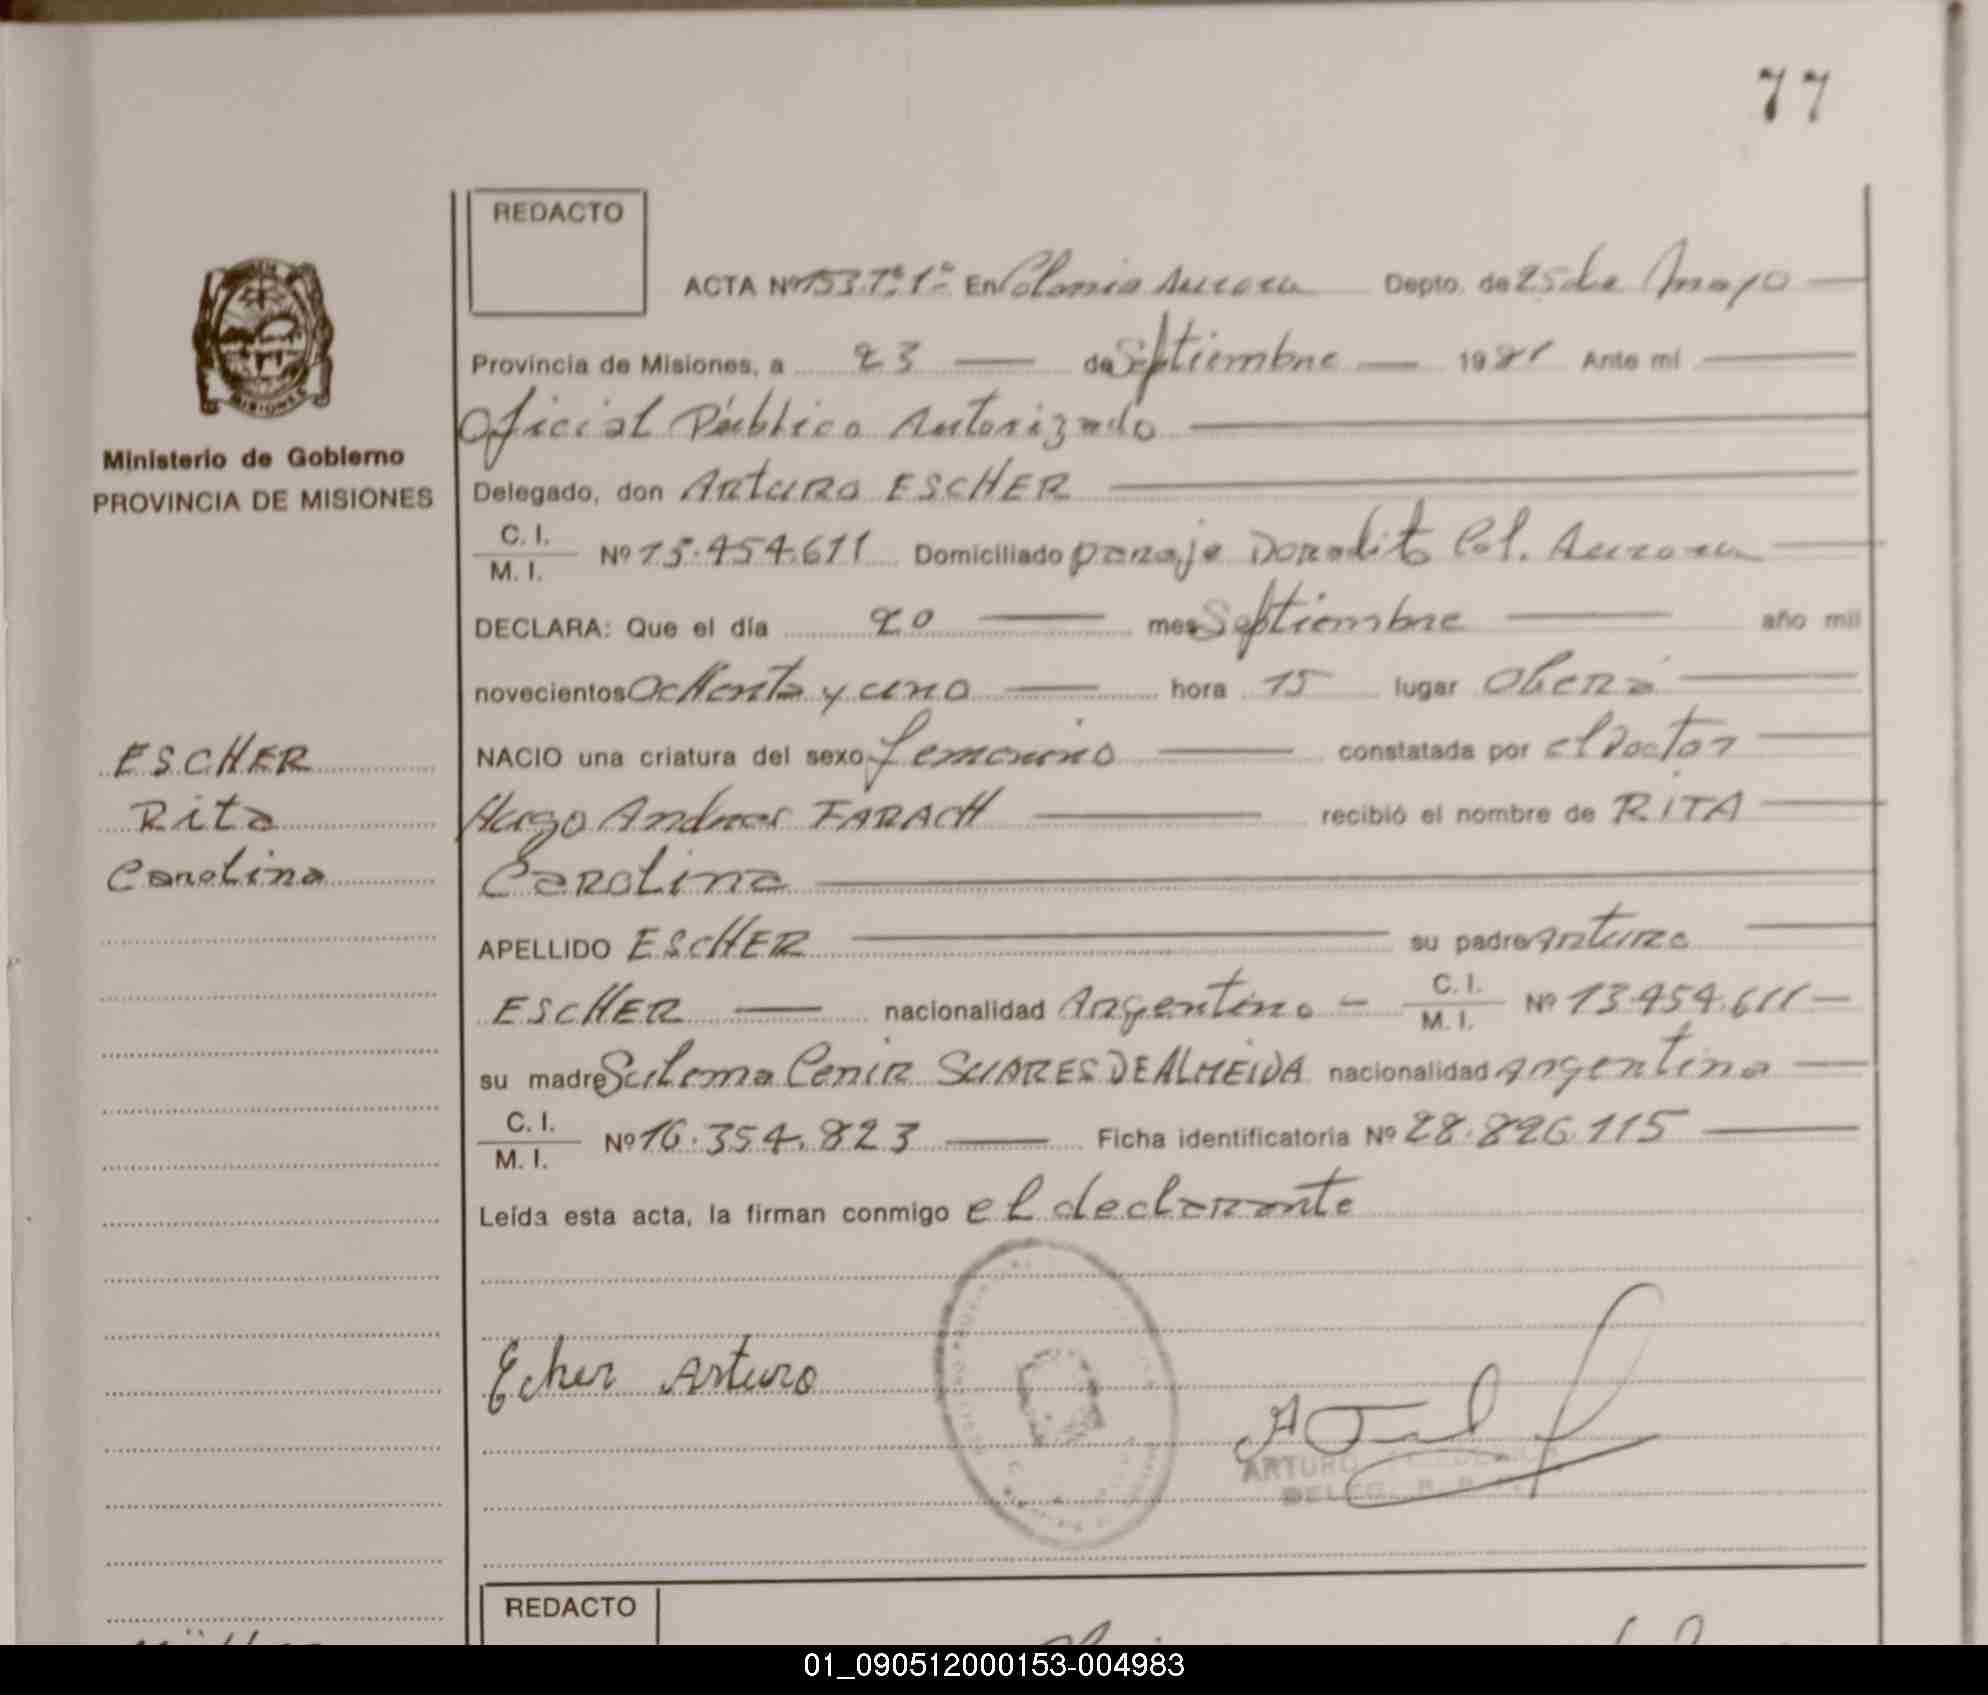 77
REDACTO
ACTA Nº 153 Tº 1º En Colonia Aurora Depto. de 25 de Mayo
Provincia de Misiones, a 23 de Septiembre 1981 Ante mí
Oficial Público Autorizado
Ministerio de Gobierno
PROVINCIA DE MISIONES
Delegado, don Arturo ESCHER
C. I.
M. I.
Nº 13.454.611 Domiciliado paraje Doradito Col. Aurora
DECLARA: Que el día 20 mes Septiembre año mil
novecientos ocHenta y uno hora 15 lugar Oberá
ESCHER
Rita
Carolina
NACIO una criatura del sexo femenino constatada por el Doctor
Hugo Andres FARACH recibió el nombre de RITA
Carolina
APELLIDO ESCHER su padre Arturo
ESCHER nacionalidad Argentino C. I.
M. I.
Nº 13.454.611
su madre Sulema Cenir SUARES DE ALMEIDA nacionalidad Argentina
C. I.
M. I.
Nº 16.354.823 Ficha identificatoria Nº 28.826.115
Leída esta acta, la firman conmigo el declarante
Echer Arturo
ARTURO
DELEG.
REDACTO
01_090512000153-004983